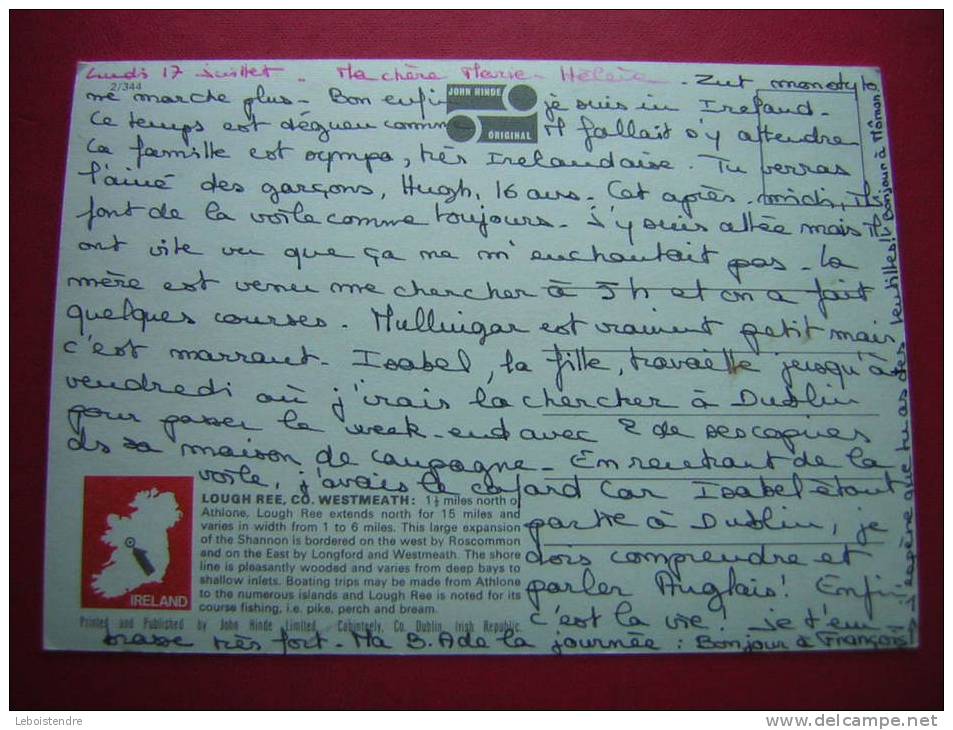 Lundi 17 Juillet. Ma chère Marie-Hélène. Zut mon stylo
2/344
ne marche plus. Bon enfin je suis in Ireland.
JOHN HINDE
ORIGINAL
Ce temps est dégueu comme Il fallait s'y attendre
La famille est sympa, très Irelandaise. Tu verras
l'ainé des garçons, Hugh, 16 ans. Cet après-midi, ils
font de la voile comme toujours. J'y suis allée mais ils
ont vite vu que ça ne m'enchantait pas. La
mère est venu me chercher à 5h et on a fait
quelques courses. Mullingar est vraiment petit mais
c'est marrant. Isabel, la fille, travaille jusqu'à
vendredi où j'irais la chercher à Dublin
pour passer le week-end avec 2 de ses copines
ds sa maison de campagne. En rentrant de la
voile, j'avais le cafard car Isabel étant
partie à Dublin, je
dois comprendre et
parler Anglais! Enfin
c'est la vie! Je t'em
brasse très fort. Ma B.A de la journée: Bonjour à François!
J'espère que tu as des lentilles!! Bonjour à Môman
LOUGH REE, CO. WESTMEATH: 1½ miles north of
Athlone, Lough Ree extends north for 15 miles and
varies in width from 1 to 6 miles. This large expansion
of the Shannon is bordered on the west by Roscommon
and on the East by Longford and Westmeath. The shore
line is pleasantly wooded and varies from deep bays to
shallow inlets. Boating trips may be made from Athlone
to the numerous islands and Lough Ree is noted for its
course fishing, i.e. pike, perch and bream.
IRELAND
Printed and Published by John Hinde Limited, Cabinteely, Co. Dublin, Irish Republic.
Leboistendre
www.delcampe.net